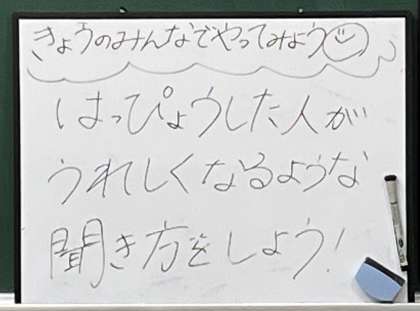 きょうのみんなでやってみよう
はっぴょうした人が
うれしくなるような
聞き方をしよう!